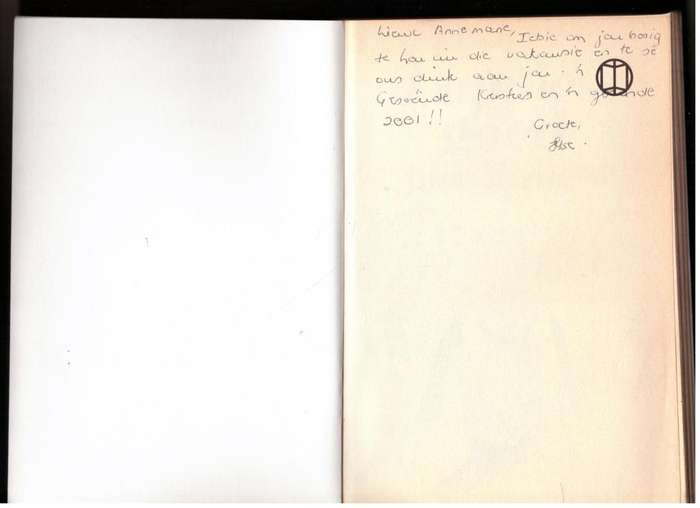 Liewe Annemarie, Ietsie om jou besig
te hou in die vakansie en te sê
ons dink aan jou. 'n
Geseënde Kersfees en 'n
2001!!
Groete,